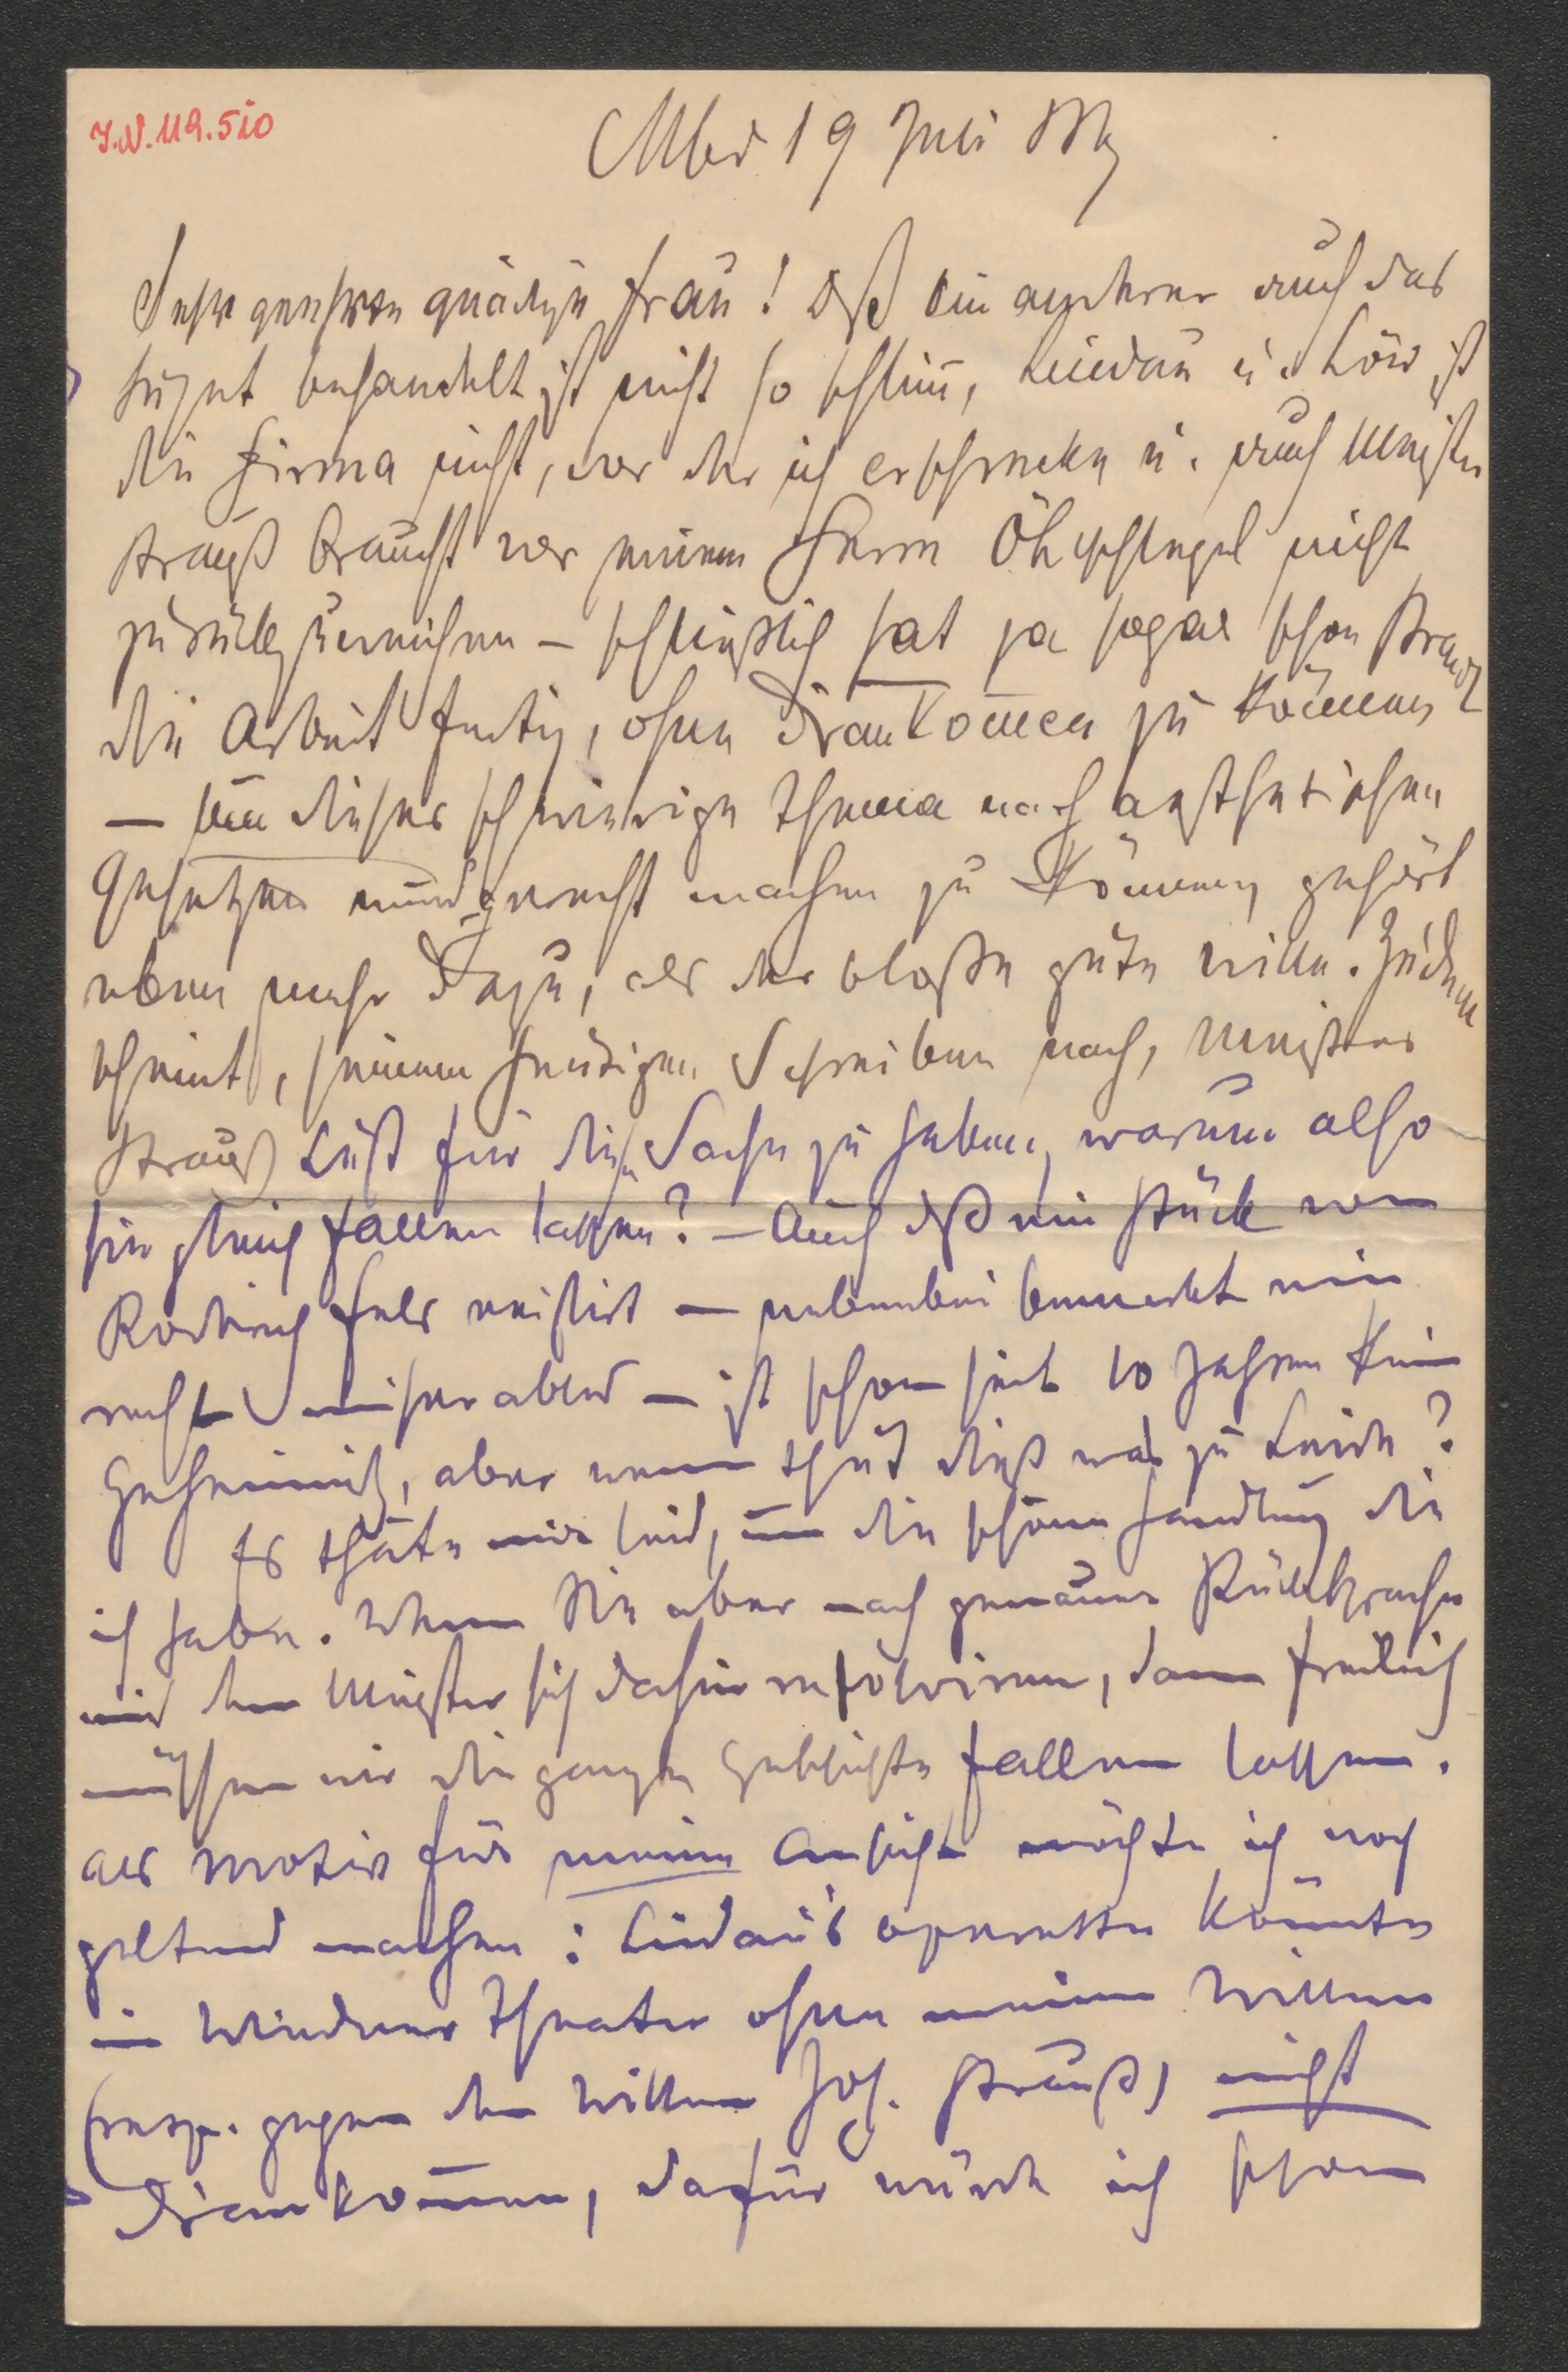 I.N. 119.510
19 Juli
Sehr geehrte gnädige Frau! Daß ein anderer auch das
Sujet behandelt ist nicht so schlimm, Lindau u. Löw ist
die Firma nicht, vor der ich erschrecke u. auch Meister
Strauß braucht vor einem Herrn Öhlschlegel nicht
zurückzuweichen – schließlich hat ja sogar schon Brandl
die Arbeit fertig, ohne drankommen zu können
– um dieses schwierige Thema nach aesthetischen
Gesetzen mundgerecht machen zu können gehört
eben mehr dazu, als der bloße gute Wille. Zudem
scheint, seinem heutigen Schreiben nach, Meister
Strauß Lust für diese Sache zu haben, warum also
sie gleich fallen lassen? – Auch daß ein Stück von
Roderich Fels existirt – nebenbei bemerkt ein
recht miserables – ist schon seit 10 Jahren kein
Geheimniß, aber wem thut dieß was zu Leide?
Es thäte mir leid, um die schöne Handlung die
ich habe. Wenn Sie aber nach genauer Rücksprache
mit dem Meister sich dahin resolviren, dann freilich
müssen wir die ganze Geschichte fallen lassen.
Als Motiv für meine Ansicht möchte ich noch
geltend machen: Lindau's Operette könnte
im Wiedner Theater ohne meinen Willen
(resp. gegen den Willen Joh. Strauß) nicht
drankommen, dafür würde ich schon